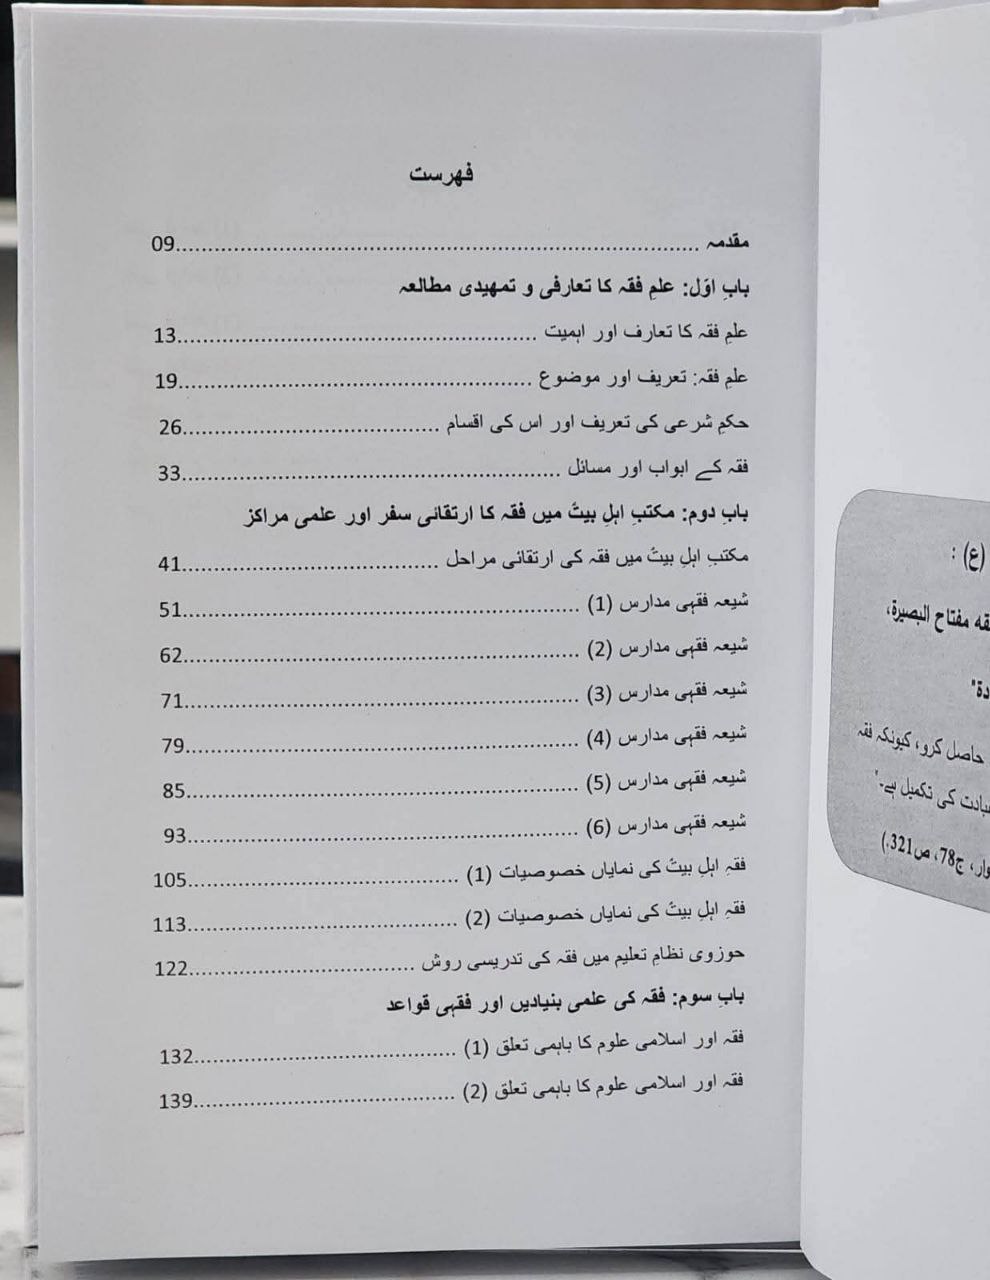 فہرست
مقدمہ ........................................................................09
بابِ اوّل: علمِ فقہ کا تعارفی و تمہیدی مطالعہ
علمِ فقہ کا تعارف اور اہمیت ........................................................13
علمِ فقہ: تعریف اور موضوع ........................................................19
حکمِ شرعی کی تعریف اور اس کی اقسام ........................................26
فقہ کے ابواب اور مسائل ............................................................33
بابِ دوم: مکتبِ اہلِ بیتؑ میں فقہ کا ارتقائی سفر اور علمی مراکز
مکتبِ اہلِ بیتؑ میں فقہ کی ارتقائی مراحل ........................................41
شیعہ فقہی مدارس (1) ..............................................................51
شیعہ فقہی مدارس (2) ..............................................................62
شیعہ فقہی مدارس (3) ..............................................................71
شیعہ فقہی مدارس (4) ..............................................................79
شیعہ فقہی مدارس (5) ..............................................................85
شیعہ فقہی مدارس (6) ..............................................................93
فقہِ اہلِ بیتؑ کی نمایاں خصوصیات (1) ..........................................105
فقہِ اہلِ بیتؑ کی نمایاں خصوصیات (2) ..........................................113
حوزوی نظامِ تعلیم میں فقہ کی تدریسی روش ....................................122
بابِ سوم: فقہ کی علمی بنیادیں اور فقہی قواعد
فقہ اور اسلامی علوم کا باہمی تعلق (1) ..........................................132
فقہ اور اسلامی علوم کا باہمی تعلق (2) ..........................................139
(ع) :
مفتاح البصيرة،
حاصل کرو، کیونکہ فقہ
کی تکمیل ہے۔"
ج78، ص321.)